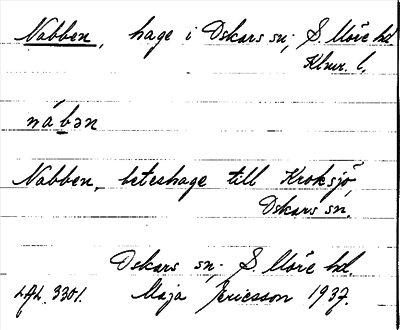 Nabben, hage i Oskars sn; S. Möre hd
Klmr. l.
nábən
Nabben, beteshage till Kroksjö,
Oskars sn.
Oskars sn; S. Möre hd.
LAL. 3301. Maja Ericsson 1937.